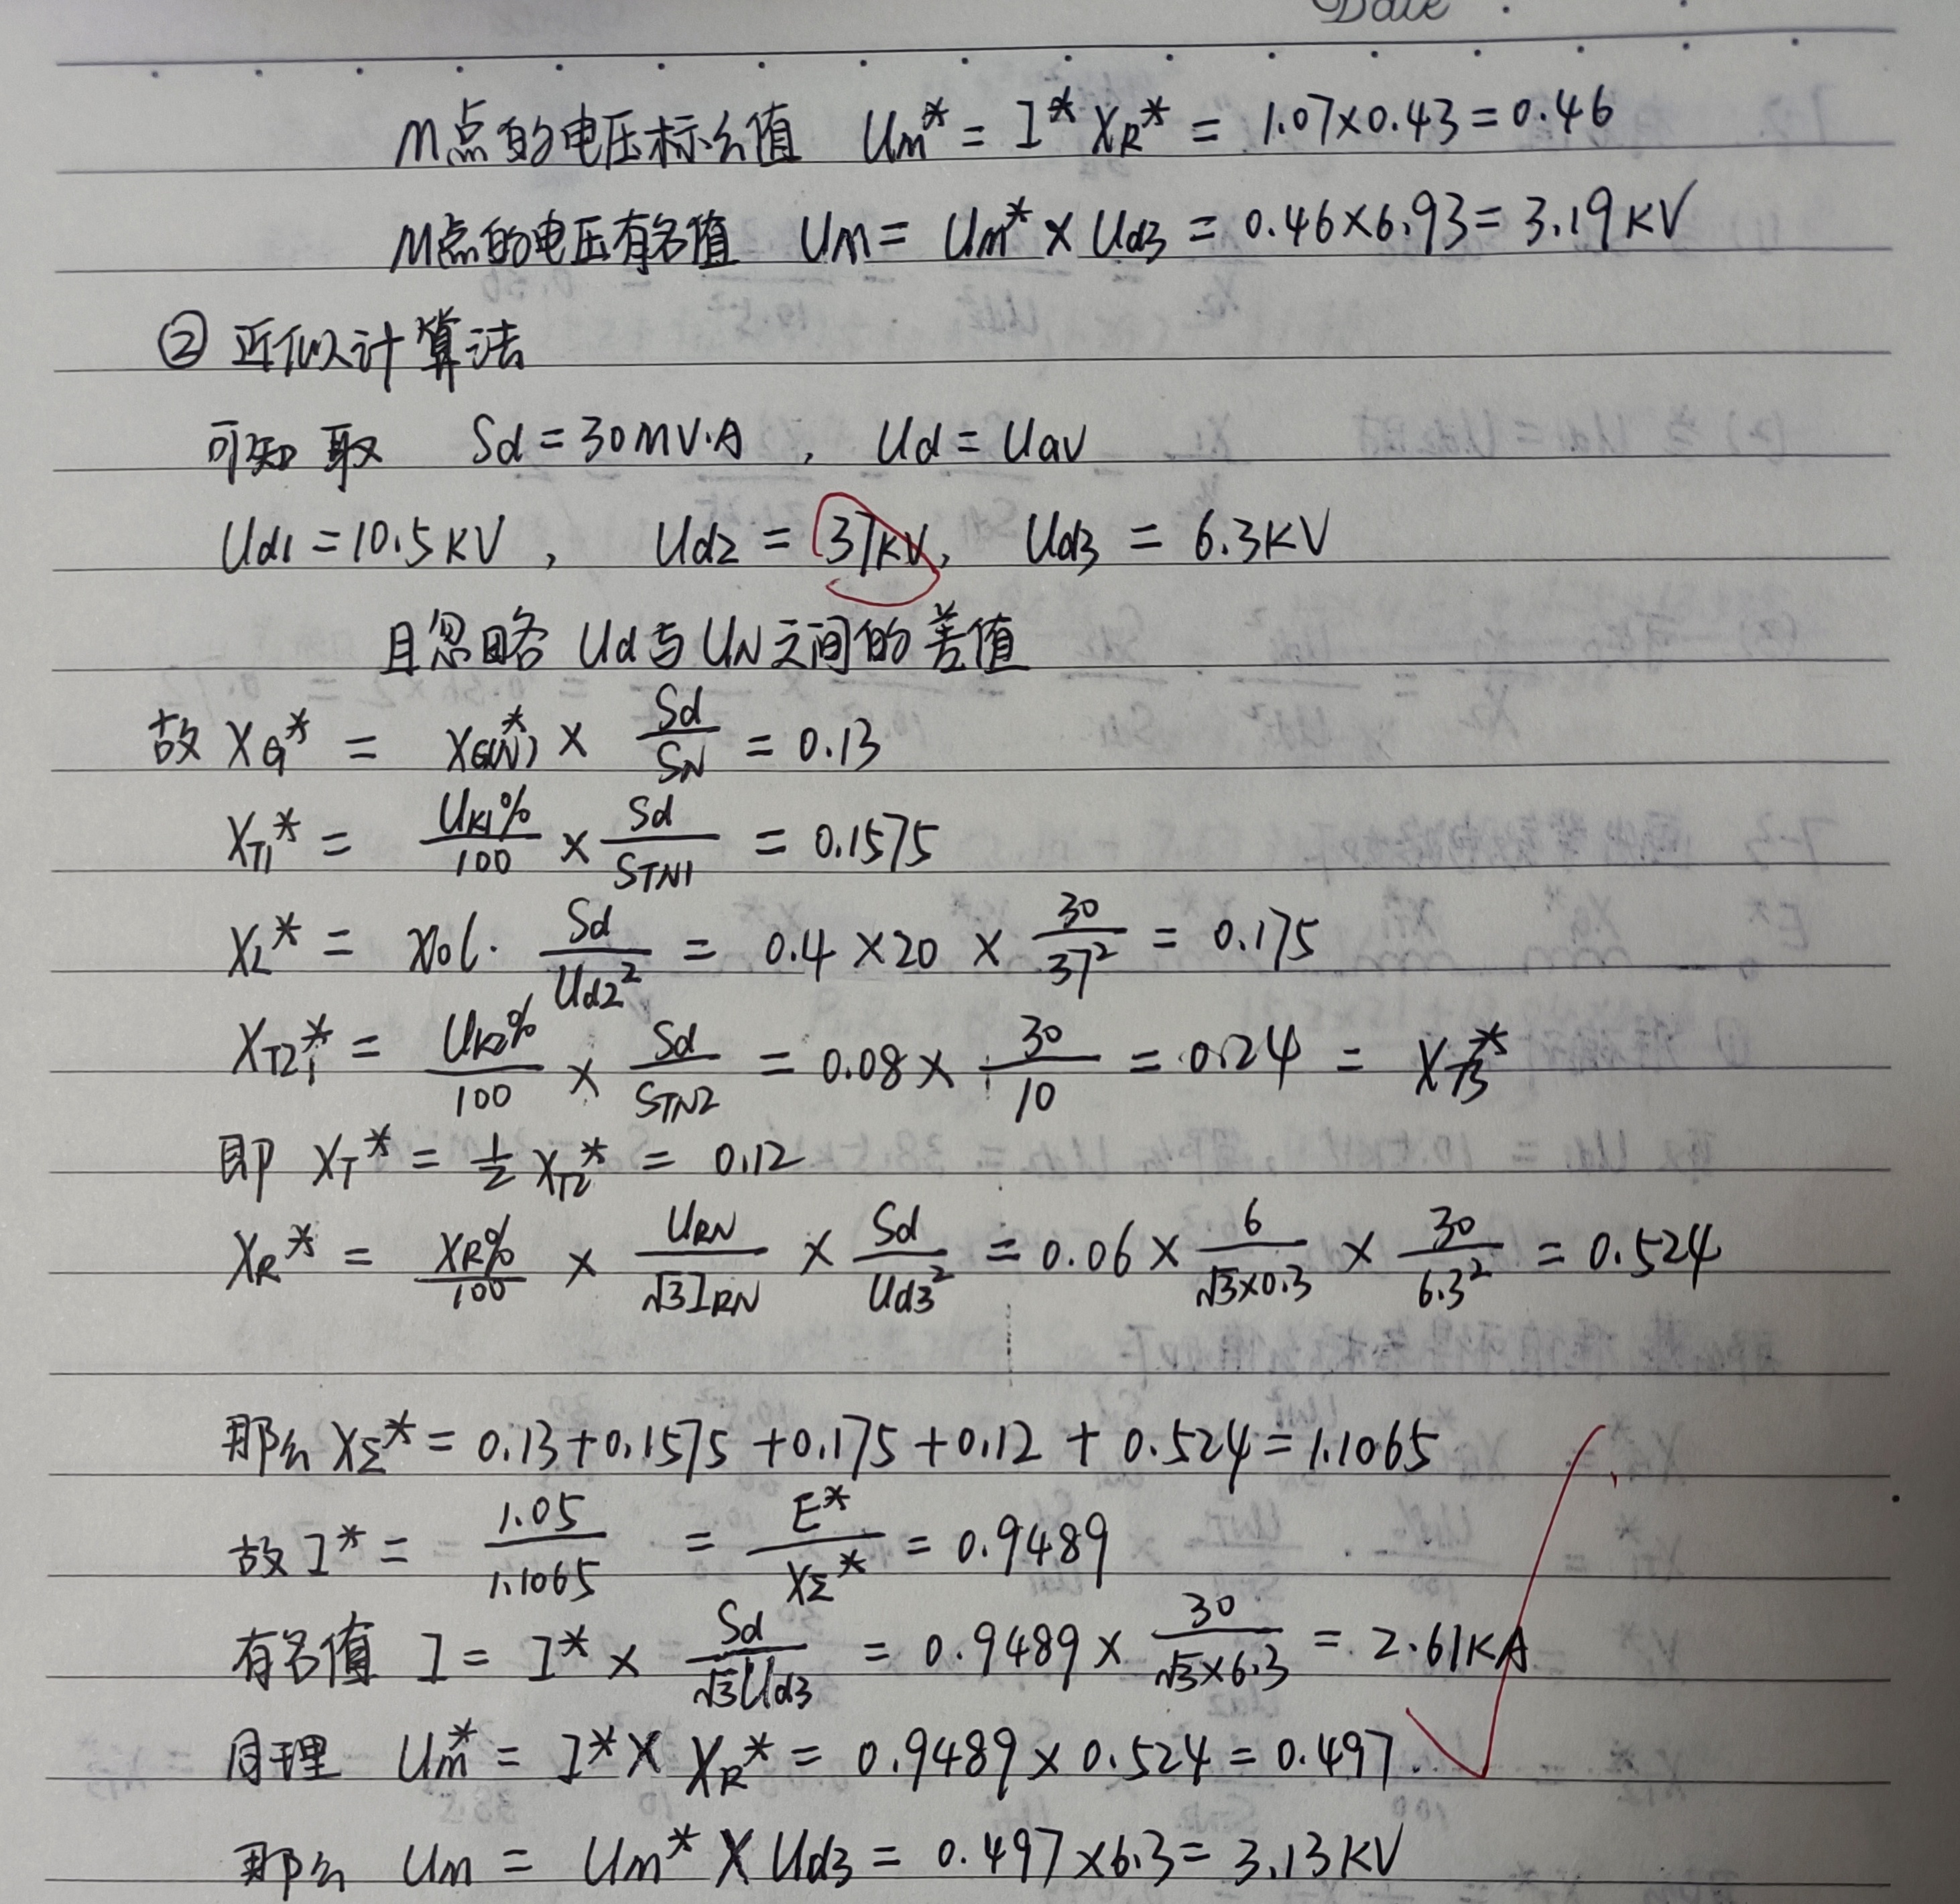 Date .
M点的电压标幺值 Um* = I* XR* = 1.07×0.43=0.46
M点的电压有名值 UM = Um* × Ud3 = 0.46×6.93 = 3.19KV
② 近似计算法
可知 取 Sd = 30MV·A , Ud = Uav
Ud1 = 10.5KV , Ud2 = 37KV, Ud3 = 6.3KV
且忽略 Ud与UN之间的差值
故 XG* = XG(N)* × Sd/SN = 0.13
XT1* = UK1%/100 × Sd/STN1 = 0.1575
XL* = X0l· Sd/Ud2² = 0.4×20× 30/37² = 0.175
XT2* = UK2%/100 × Sd/STN2 = 0.08× 30/10 = 0.24 = XT3*
即 XT* = 1/2 XT2* = 0.12
XR* = XR%/100 × URN/√3IRN × Sd/Ud3² = 0.06× 6/√3×0.3 × 30/6.3² = 0.524
那么 XΣ* = 0.13+0.1575+0.175+0.12+0.524=1.1065
故 I* = 1.05/1.1065 = E*/XΣ* = 0.9489
有名值 I = I* × Sd/√3Ud3 = 0.9489× 30/√3×6.3 = 2.61KA
同理 Um* = I*× XR* = 0.9489×0.524=0.497.
那么 Um = Um* × Ud3 = 0.497×6.3=3.13KV